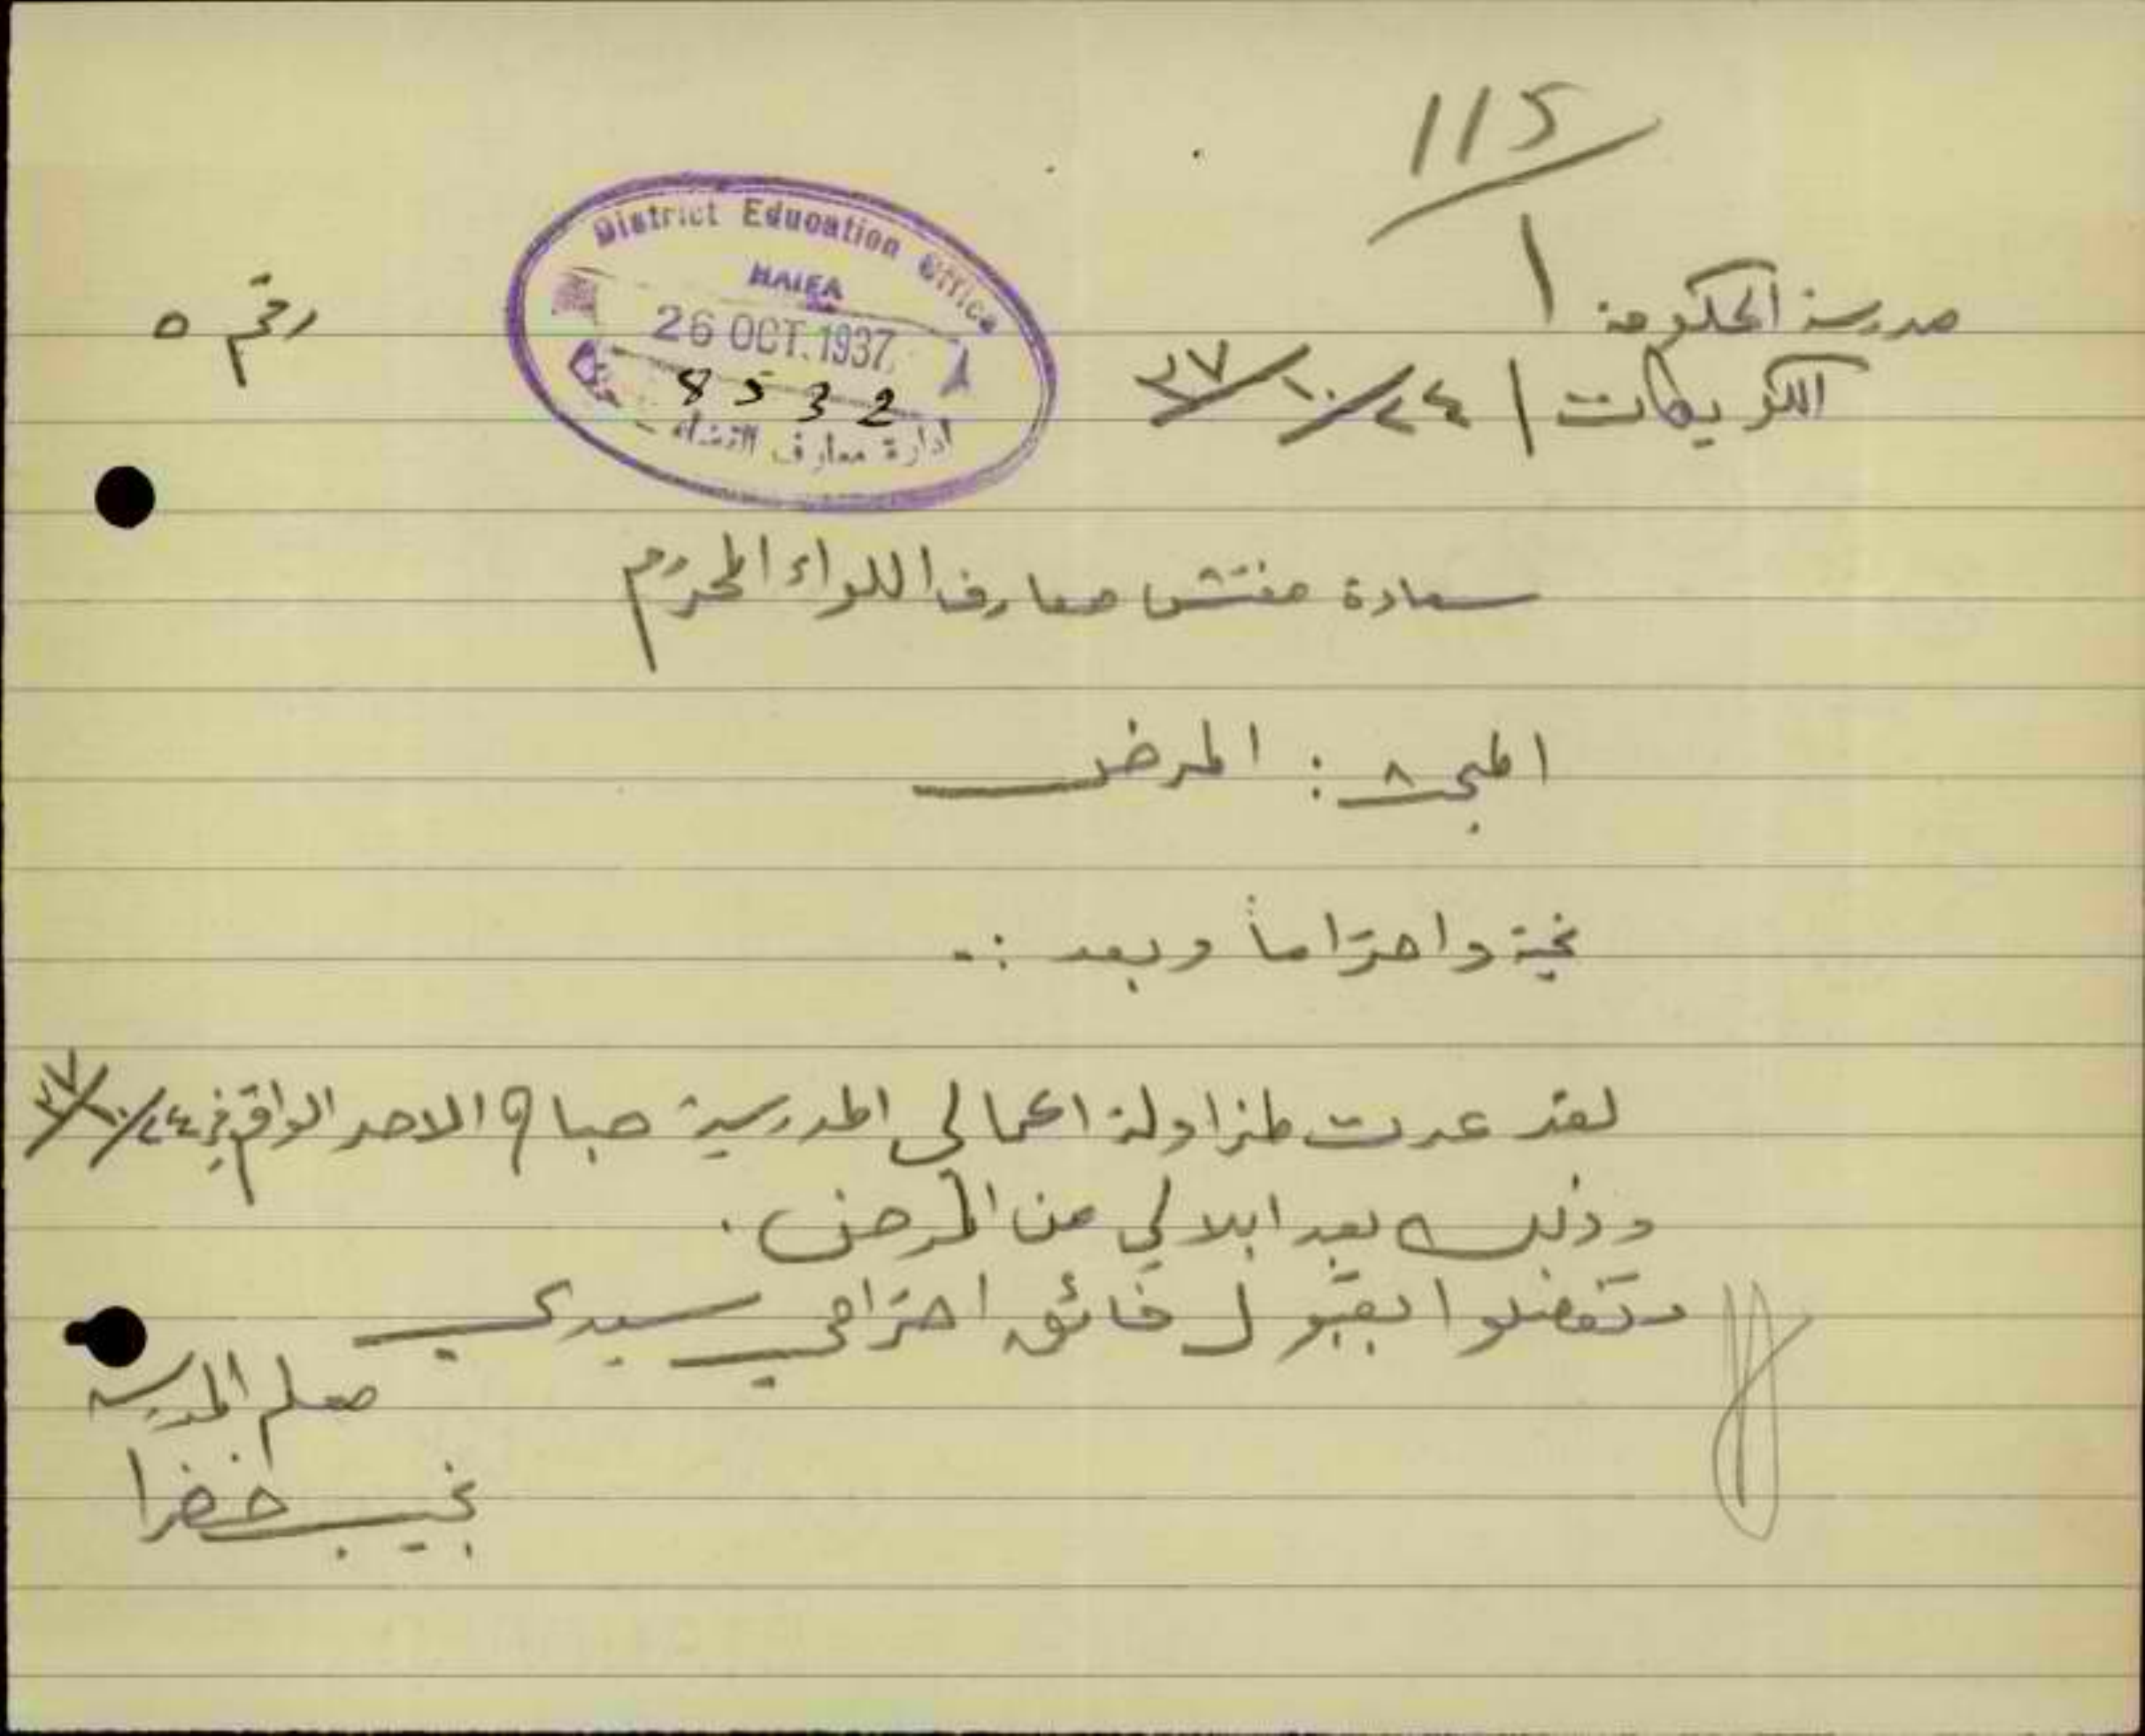 115
مدرسة الحكومة
الكويكات | ٢٤/١٠/٣٧
رقم ٥
District Education Office
HAIFA
26 OCT. 1937
8532
ادارة معارف
سعادة مفتش معارف اللواء المحترم
المبحث : المرض
تحية واحتراماً وبعد :-
لقد عدت لمزاولة اعمالي المدرسية صباح الاحد الواقع في ٢٤/١٠/٣٧
وذلك بعد ابلالي من المرض .
وتفضلوا بقبول فائق احترامي سيدي
معلم المدرسة
نجيب خضرا